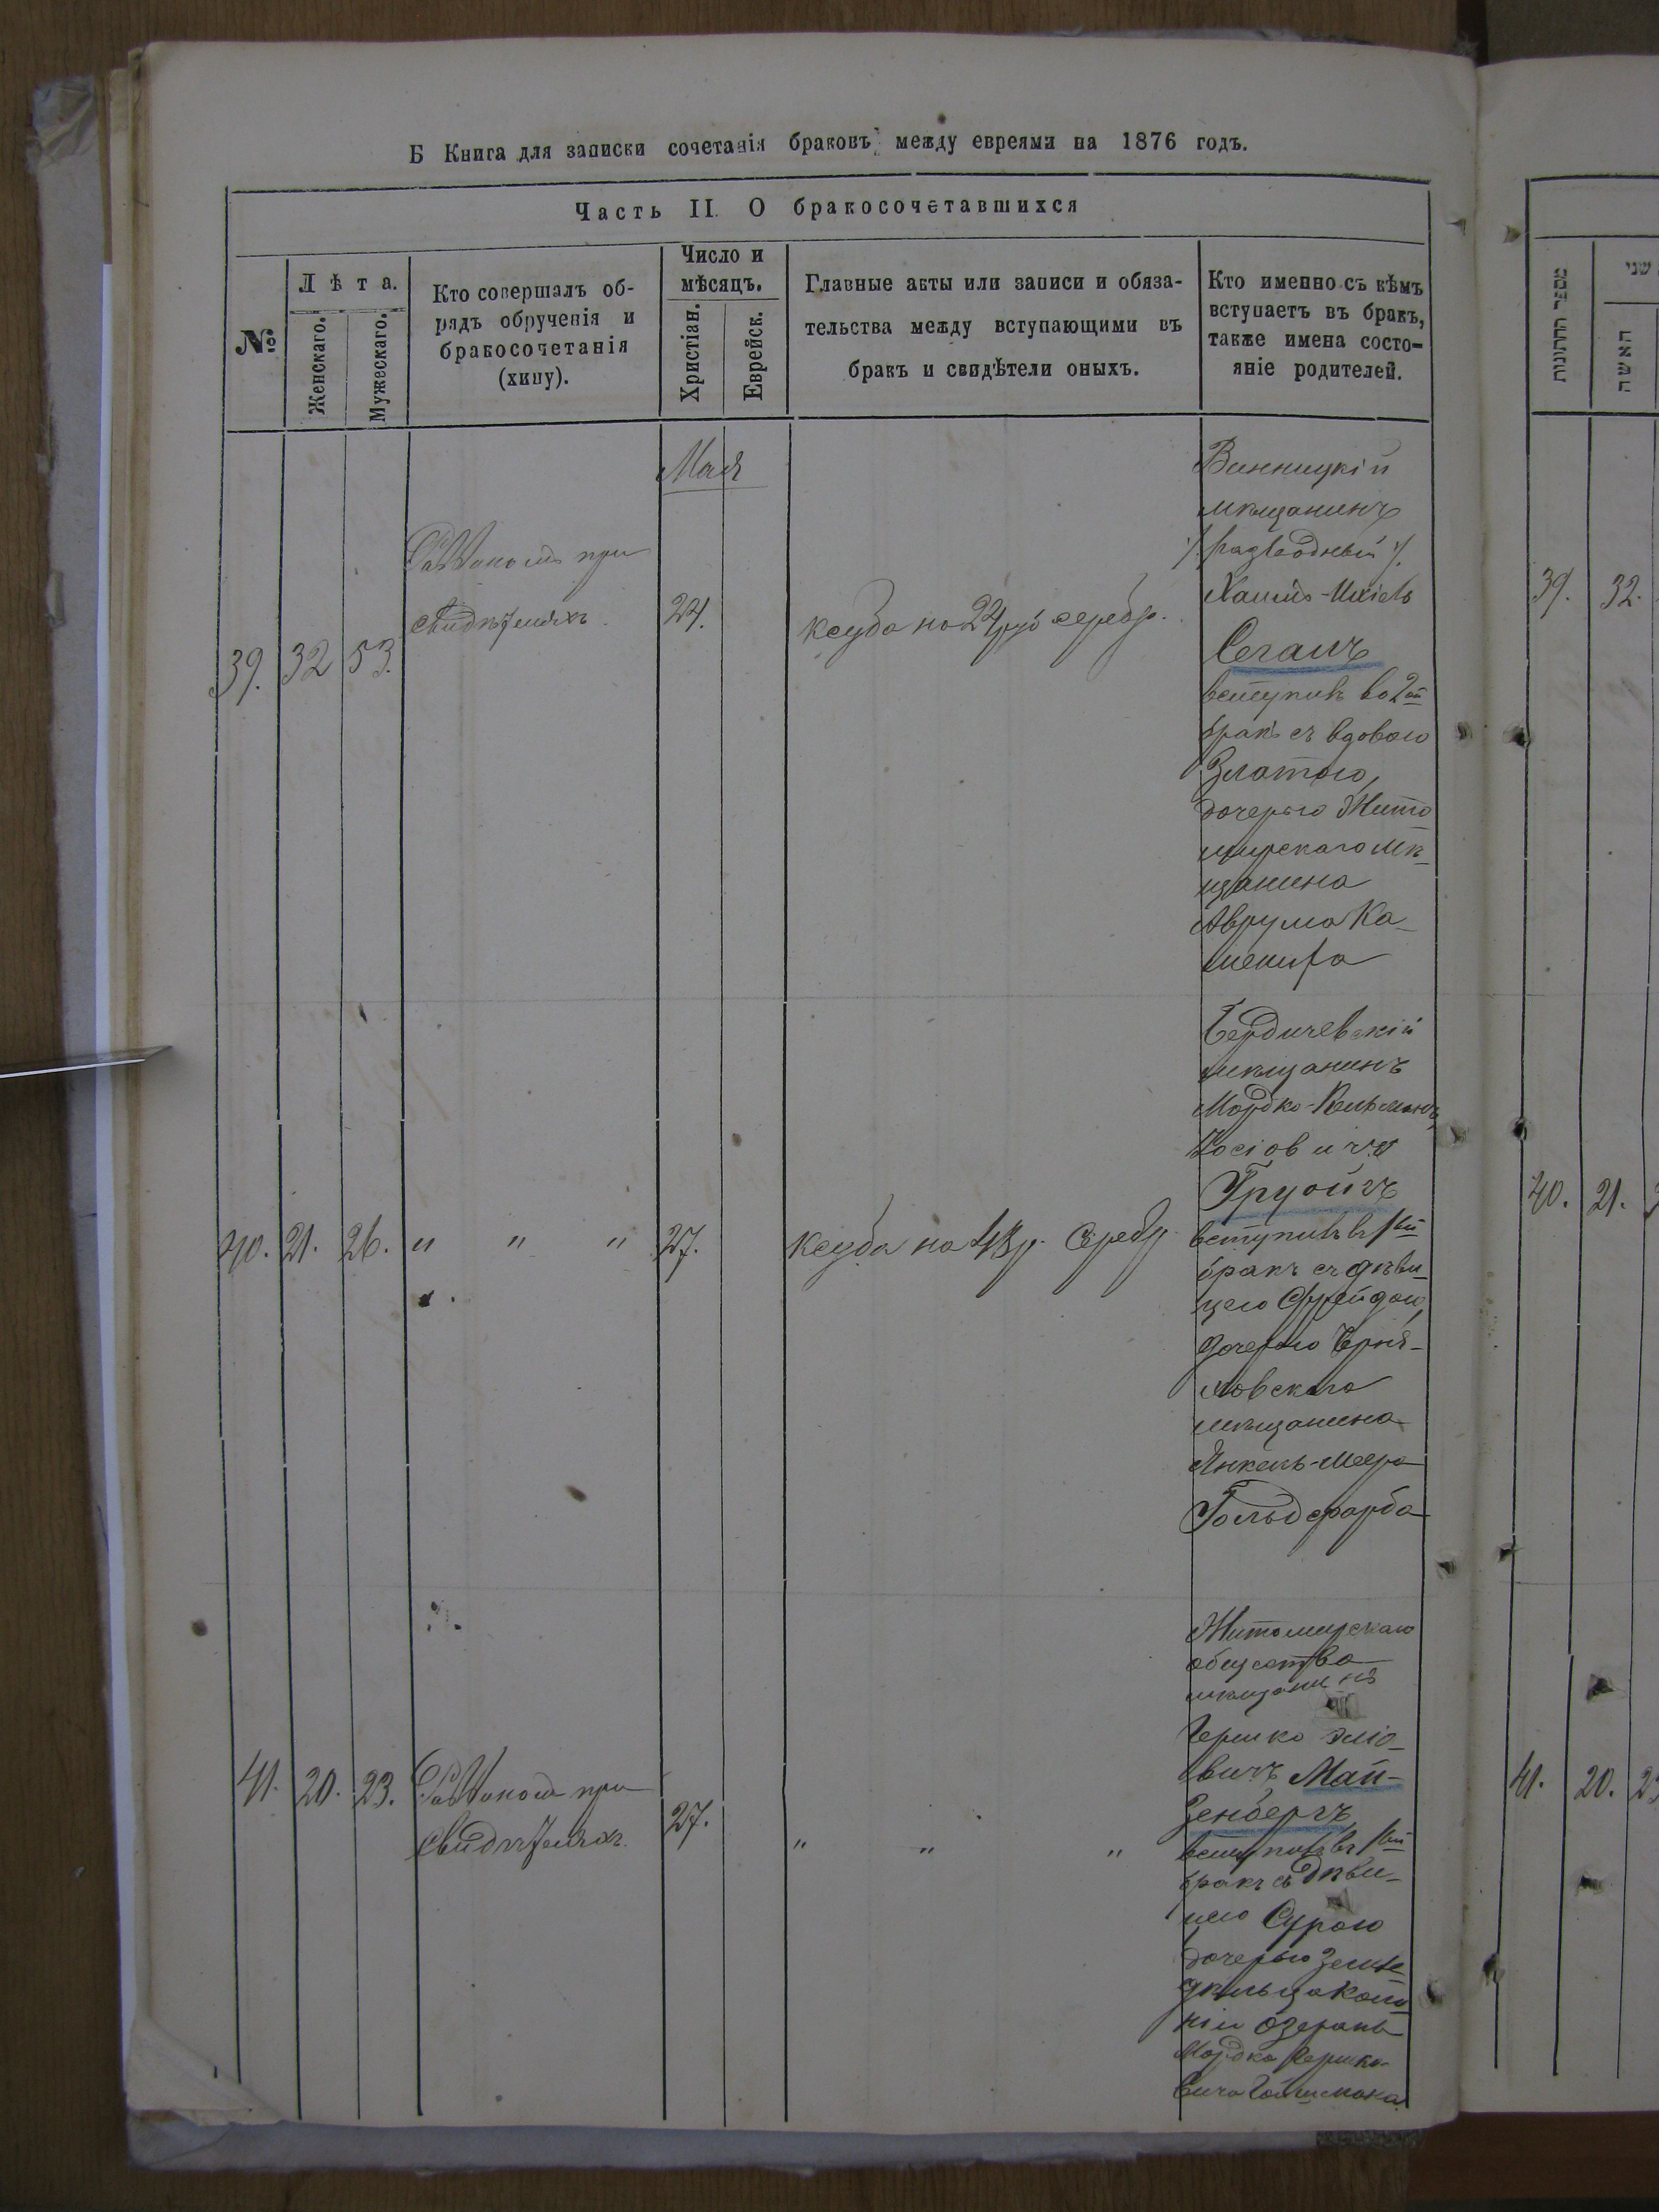 Б Книга для записки сочетанія браковъ между евреями на 1876 годъ.
Часть II. О бракосочетавшихся
№
Лѣта.
Женскаго.
Мужескаго.
Кто совершалъ об-
рядъ обрученія и
бракосочетанія
(хипу).
Число и
мѣсяцъ.
Христіан.
Еврейск.
Главные акты или записи и обяза-
тельства между вступающими въ
бракъ и свидѣтели оныхъ.
Кто именно съ кѣмъ
вступаетъ въ бракъ,
также имена состо-
яніе родителей.
Мая
39. 32 53.
при
свидѣтеляхъ
24.
ксуба на 24 руб серебр.
Винницкій
мѣщанинъ
/. разводный /.
Сеганъ
вступилъ во 2ой
бракъ съ вдовою
Златою,
дочерью Жито
мирскаго мѣ-
щанина
Аврума Ка-
40. 21. 26.
" " "
27.
ксуба на 48 р. серебр
Бердичевскій
мѣщанинъ
Мордко-
Іосіовичъ
вступилъ въ 1ый
бракъ съ дѣви-
цею Фрейдою,
дочерью Черня-
ховскаго
мѣщанина
Янкель-Меера
Гольдфарба
41. 20. 23.
при
свидѣтеляхъ
27.
" " "
Житомирскаго
общества
мѣщанинъ
Гершко Эліо-
вичъ Май-
зенбергъ
вступилъ въ 1ый
бракъ съ дѣви-
цею Сурою
дочерью земле
дѣльца коло
ніи Озеряны
Мордка Гершко-
вича
מספר החתונות
שני
האשה
39. 32.
40. 21.
41. 20.